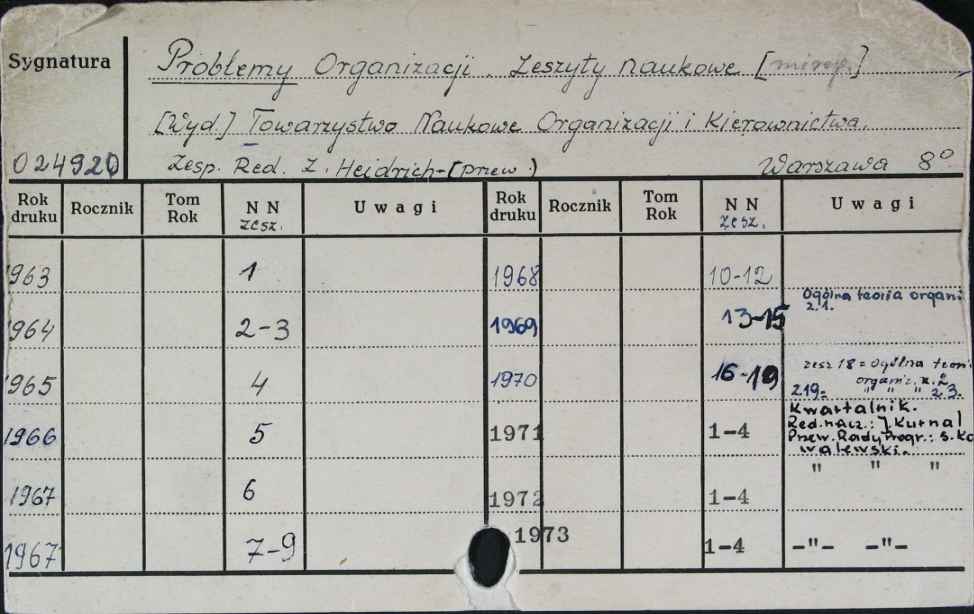 Sygnatura
Problemy Organizacji. Zeszyty naukowe
[Wyd.] Towarzystwo Naukowe Organizacji i Kierownictwa.
024920 Zesp. Red. Z. Heidrich-(przew.) Warszawa 8°
Rok druku Rocznik Tom Rok NN zesz. Uwagi Rok druku Rocznik Tom Rok NN zesz. Uwagi
1963 1 1968 10-12
Ogólna teoria organi
z.1.
1964 2-3 1969 13-15
zesz 18 = Ogólna teori
1965 4 1970 16-19 organiz. z. 2
z19= " " " z.3.
Kwartalnik.
1966 5 1971 1-4 Red. nacz.: J. Kurnal
Przew. Rady Progr.: S. Ko
walewski.
" " "
1967 6 1972 1-4
1973
1967 7-9 1-4 -"- -"-